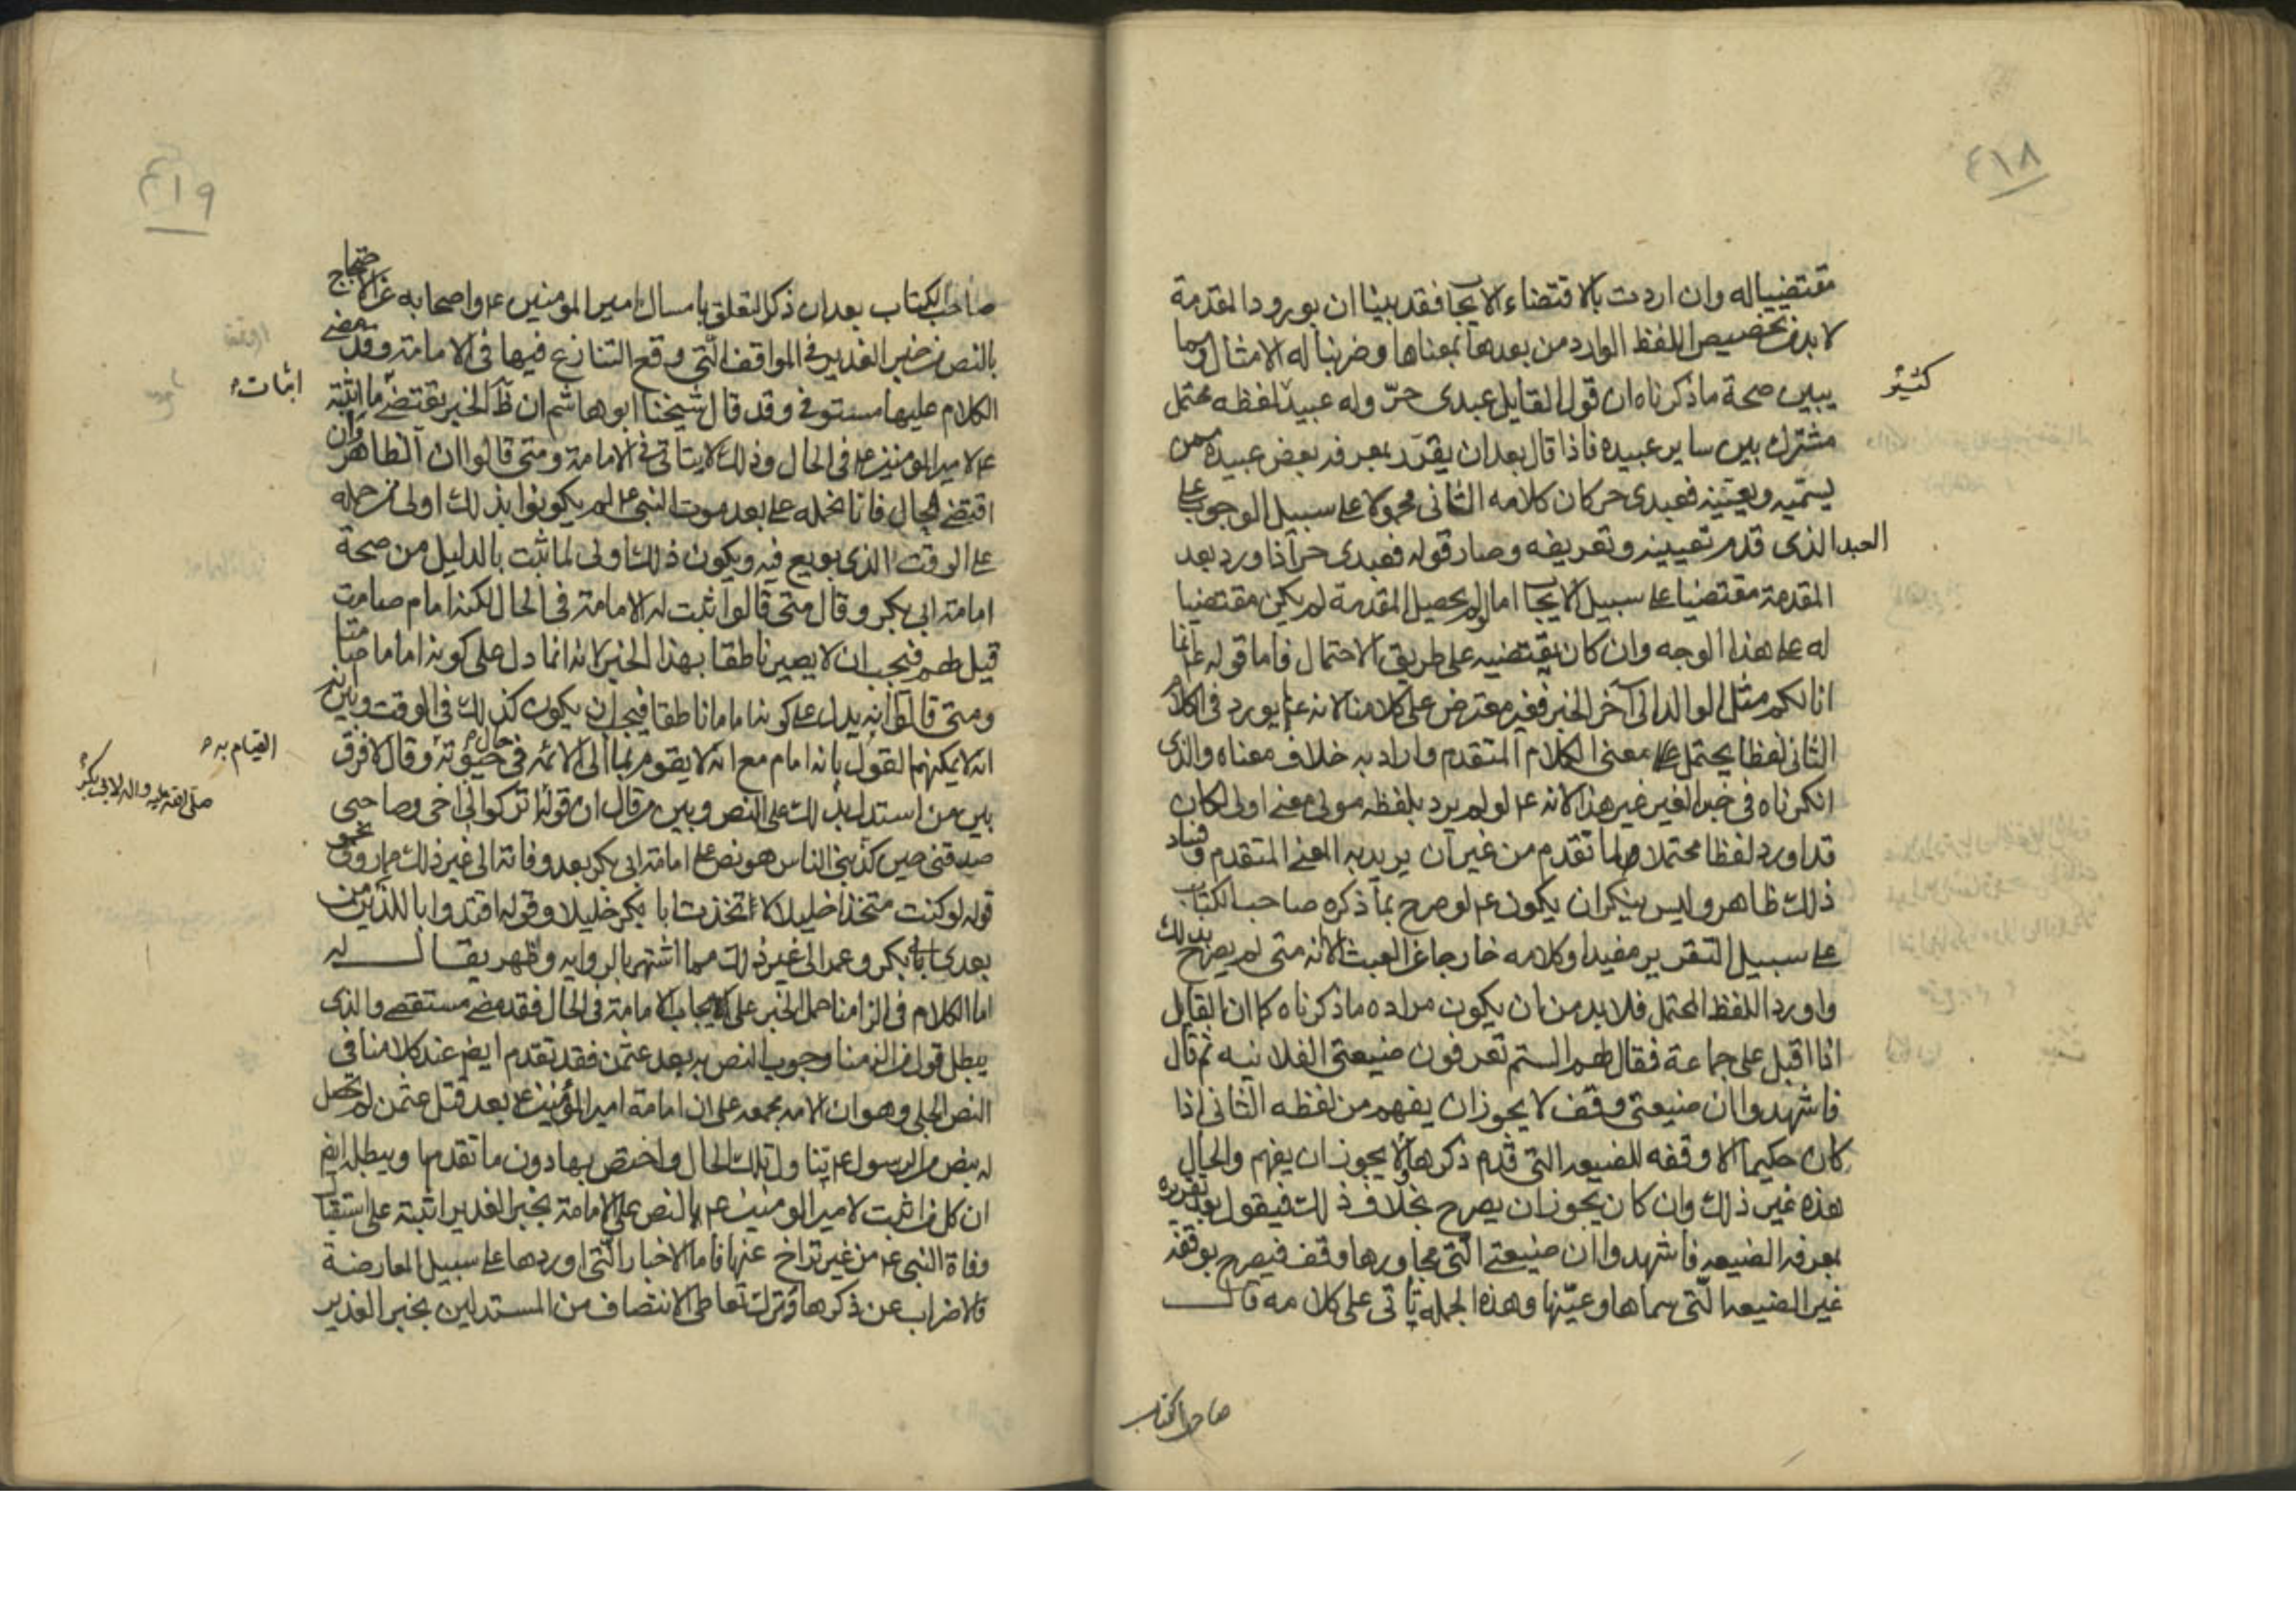 ٤١٨
مقتضييا له وان اردت بالاقتضاء الايجاب فقد بينا ان بورود المقدمة
لا بد من تخصيص اللفظ الوارد من بعدها بمعناها وضربنا له الامثال ومما
كثير
يبين صحة ما ذكرناه ان قول القايل عبدى حرّ وله عبيد لفظه محتمل
مشترك بين ساير عبيده فاذا قال بعد ان يقرّر بمعرفه بعض عبيده ممن
يسمّيه ويعيّنه فعبدى حر كان كلامه الثانى محمولا على سبيل الوجوب على
العبد الذى قدم تعيينه وتعريفه وصار قوله فعبدى حر اذا ورد بعد
المقدمة مقتضيا على سبيل الايجاب اما لو لم يحصل المقدمة لم يكن مقتضيا
له على هذا الوجه وان كان يقتضيه على طريق الاحتمال فاما قوله ع انما
انا لكم مثل الوالد الى آخر الخبر فغير معترض على كلامنا لانه ع لم يورد فى الكلام
الثانى لفظا يحتمل معنى الكلام المتقدم واراد به خلاف معناه والذى
انكرناه فى خبر الغدير غير هذا لانه ع لو لم يرد بلفظه مولى معنى اولى لكان
قد اورد لفظا محتملا لما تقدم من غير ان يريد به المعنى المتقدم وفساد
ذلك ظاهر وليس ينكر ان يكون ع لو صرح بما ذكره صاحب الكتاب
على سبيل التقرير مفيدا وكلامه خارجا عن العبث الا انه متى لم يصرح بذلك
واورد اللفظ المحتمل فلا بد من ان يكون مراده ما ذكرناه كما ان القايل
اذا اقبل على جماعة فقال لهم الستم تعرفون ضيعتى الفلانيه ثم قال
فاشهدوا ان ضيعتى وقف لا يجوز ان يفهم من لفظه الثانى اذا
كان حكيما الا وقفه للضيعه التى قدم ذكرها ولا يجوز ان يفهم والحال
هذه غير ذلك وان كان يجوز ان يصرح بخلاف ذلك فيقول بعد تقريره
بمعرفه الضيعه فاشهدوا ان ضيعتى الّتى مجاورها وقف فيصرح بوقفه
غير الضيعه الّتى سماها وعيّنها وهذه الجمله تاتى على كلامه قال
صاحب الكتاب
٤١٩
صاحب الكتاب بعد ان ذكر التعلق بامساك امير المومنين ع واصحابه عن الاحتجاج
بالنص من خبر الغدير فى المواقف الّتى وقع التنازع فيها فى الامامة وقد مضى
الكلام عليها مستوفى وقد قال شيخنا ابو هاشم ان ظاهر الخبر يقتضى ما اثبته
اثبات
ع لامير المومنين ع فى الحال وذلك لا يتاتى فى الامامة ومتى قالوا ان الظاهر وان
اقتضى الحال فانا نحمله على بعد موت النبى ع لم يكونوا بذلك اولى من حمله
على الوقت الذى بويع فيه ويكون ذلك اولى لما ثبت بالدليل من صحة
امامة ابى بكر وقال متى قالوا اثبت له الامامة فى الحال لكنه امام صامت
قيل لهم فيجب ان لا يصير ناطقا بهذا الخبر لانه انما دل على كونه اماما صامتا
ومتى قالوا انه يدل على كونه اماما ناطقا فيجب ان يكون كذلك فى الوقت وبين
القيام به
انه لا يمكنهم القول بانه امام مع انه لا يقوم بما الى الائمه فى حال حيوته وقال لا فرق
صلى الله عليه واله لابى بكر
بين من استدل بذلك على النص وبين من قال ان قوله اتركوا لى اخى وصاحبى
صدقنى حين كذبنى الناس هو نص على امامة ابى بكر بعد وفاته الى غير ذلك مما روى نحو
قوله لو كنت متخذا خليلا لاتخذت ابا بكر خليلا وقوله اقتدوا باللذين من
بعدى ابى بكر وعمر الى غير ذلك مما اشتهر بالروايه وظهر يقال له
اما الكلام فى الزامنا حمل الخبر على ايجاب الامامة فى الحال فقد مضى مستقصى والذى
يبطل قول من الزمنا وجوب النص به بعد عثمن فقد تقدم ايضا عند كلامنا فى
النص الجلى وهو ان الامه مجمعه على ان امامة امير المؤمنين ع بعد قتل عثمن لم تحصل
له بنص من الرسول ع يتناول تلك الحال واختص بها دون ما تقدمها ويبطله ايضا
ان كل من اثبت لامير المومنين ع بالنص على الامامة بخبر الغدير اثبته على استقبال
وفاة النبى ع من غير تراخ عنها فاما الاخبار الّتى اوردها على سبيل المعارضة
فالاضراب عن ذكرها وترك تعاطى الانتصاف من المستدلين بخبر الغدير